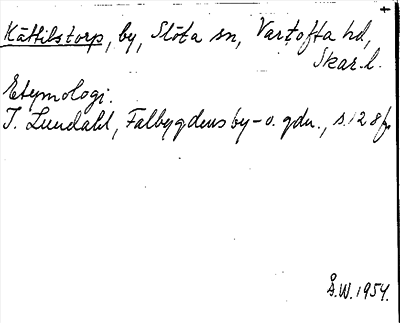 Kättilstorp, by, Slöta sn, Vartofta hd,
Skar. l.
Etymologi.
I. Lundahl, Falbygdens by- o. gdn., s. 128 f.
Å.W. 1954.